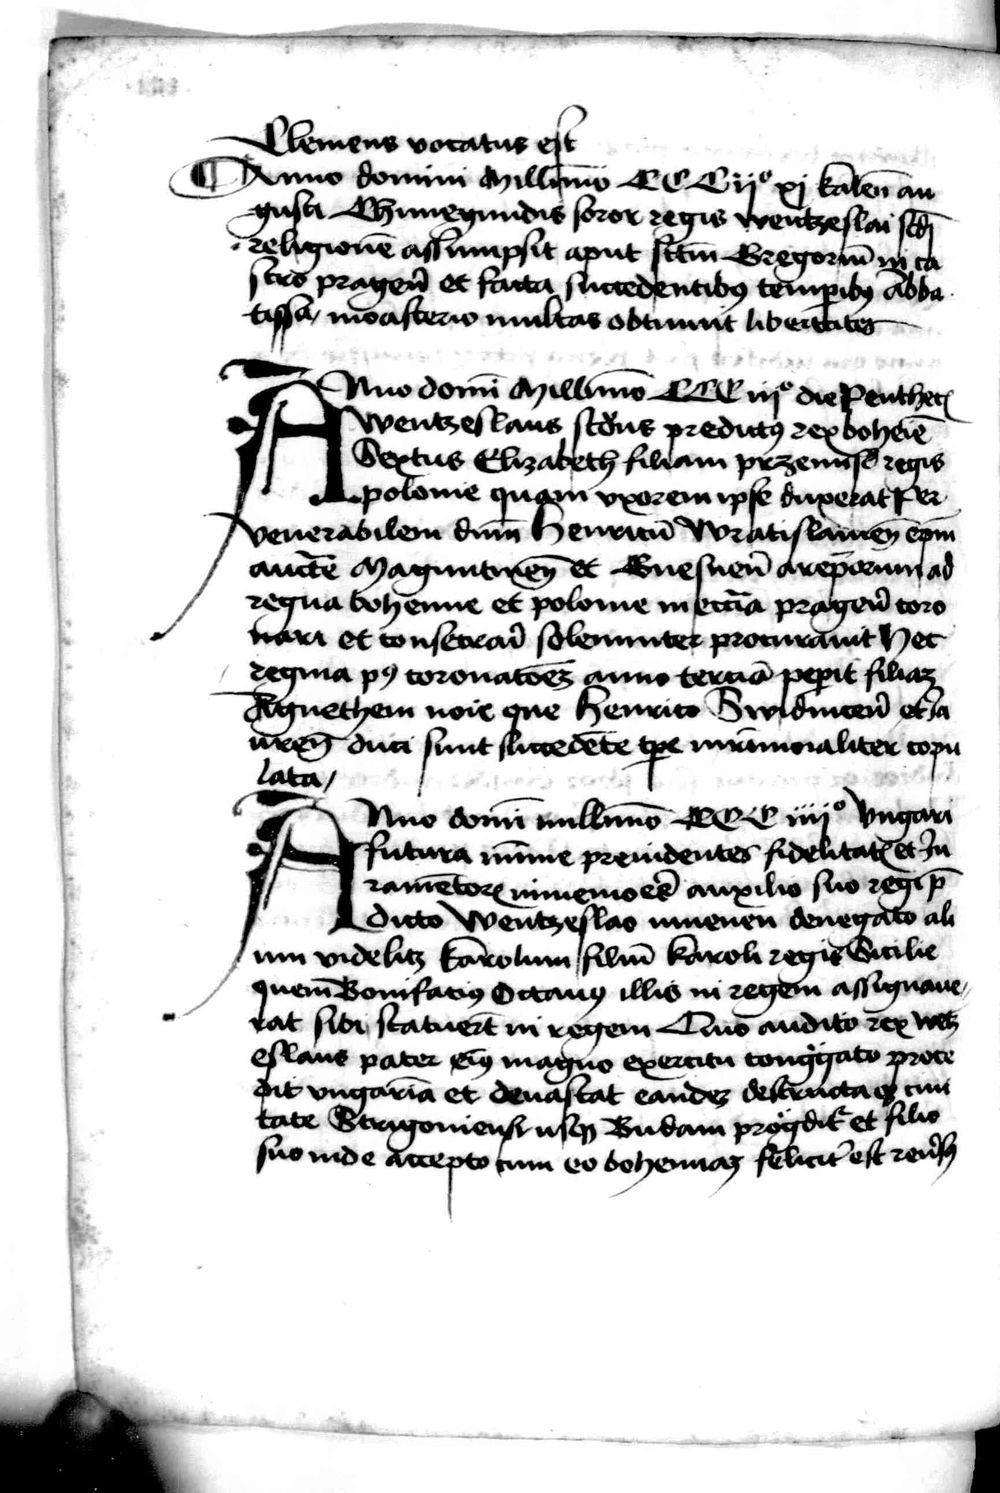 Clemens vocatus est
Anno domini Millimo CCCijo xj kalen au
gusti Chunegundis soror regis wentzeslai scdi
religionē assumpsit aput sctm Gregoriū in ca
stro pragen̄ et facta succedentibꝫ temporibꝫ abba
tissa / moasterio multas obtinuit libertates
Anno domi Millimo CCC iijo die Penthec
Wentzeslaus scdus predictꝰ rex bohēie
Sextus Elizabeth filiam przemisl regis
polonie quam vxorem ipse duxerat Per
venerabilem dnm Henricū Wratislauien̄ epm
auctte Maguntinen̄ et Gnesnen̄ arepōrum ad
regna bohemie et polonie in eccīa pragen̄ coro
nari et consecrari solemniter procurauit Hec
regina pꝰ coronatoēꝫ anno tercio peperit filiaꝫ
Agnethem noīe que Henrico Swidnicen̄ et Ja
uren̄ duci sunt succedēte tpe mrimoialiter copu
lata /
Anno domi millimo CCC iiijo Vngari
futura mīme preuidentes fidelitatꝭ et Ju
ramētorꝫ inmemores auxilio suo regi p
dicto Wentzeslao iuueni denegato ali
um videlitz karolum filiū karoli regis Sicilie
quem Bonifaciꝰ Octauꝰ illis in regem assignaue /
rat sibi statuert in regem Quo audito rex wetz
eslaus pater eiꝰ magno exercitu congregato proce
dit vngariā et deuastat eandeꝫ destructa qꝫ ciui
tate Strigoniensi usqꝫ Budam progreditꝭ et filio
suo inde accepto cum eo bohemiaꝫ felicitꝭ est reusꝰ